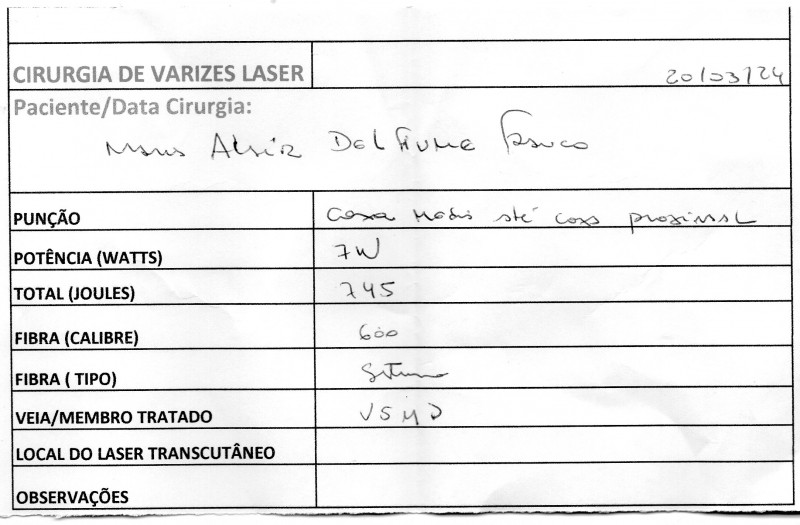 CIRURGIA DE VARIZES LASER 20/03/24
Paciente/Data Cirurgia:
Dal Fiume
PUNÇÃO coxa media até coxa proximal
POTÊNCIA (WATTS) 7W
TOTAL (JOULES) 745
FIBRA (CALIBRE) 600
FIBRA ( TIPO)
VEIA/MEMBRO TRATADO
LOCAL DO LASER TRANSCUTÂNEO
OBSERVAÇÕES